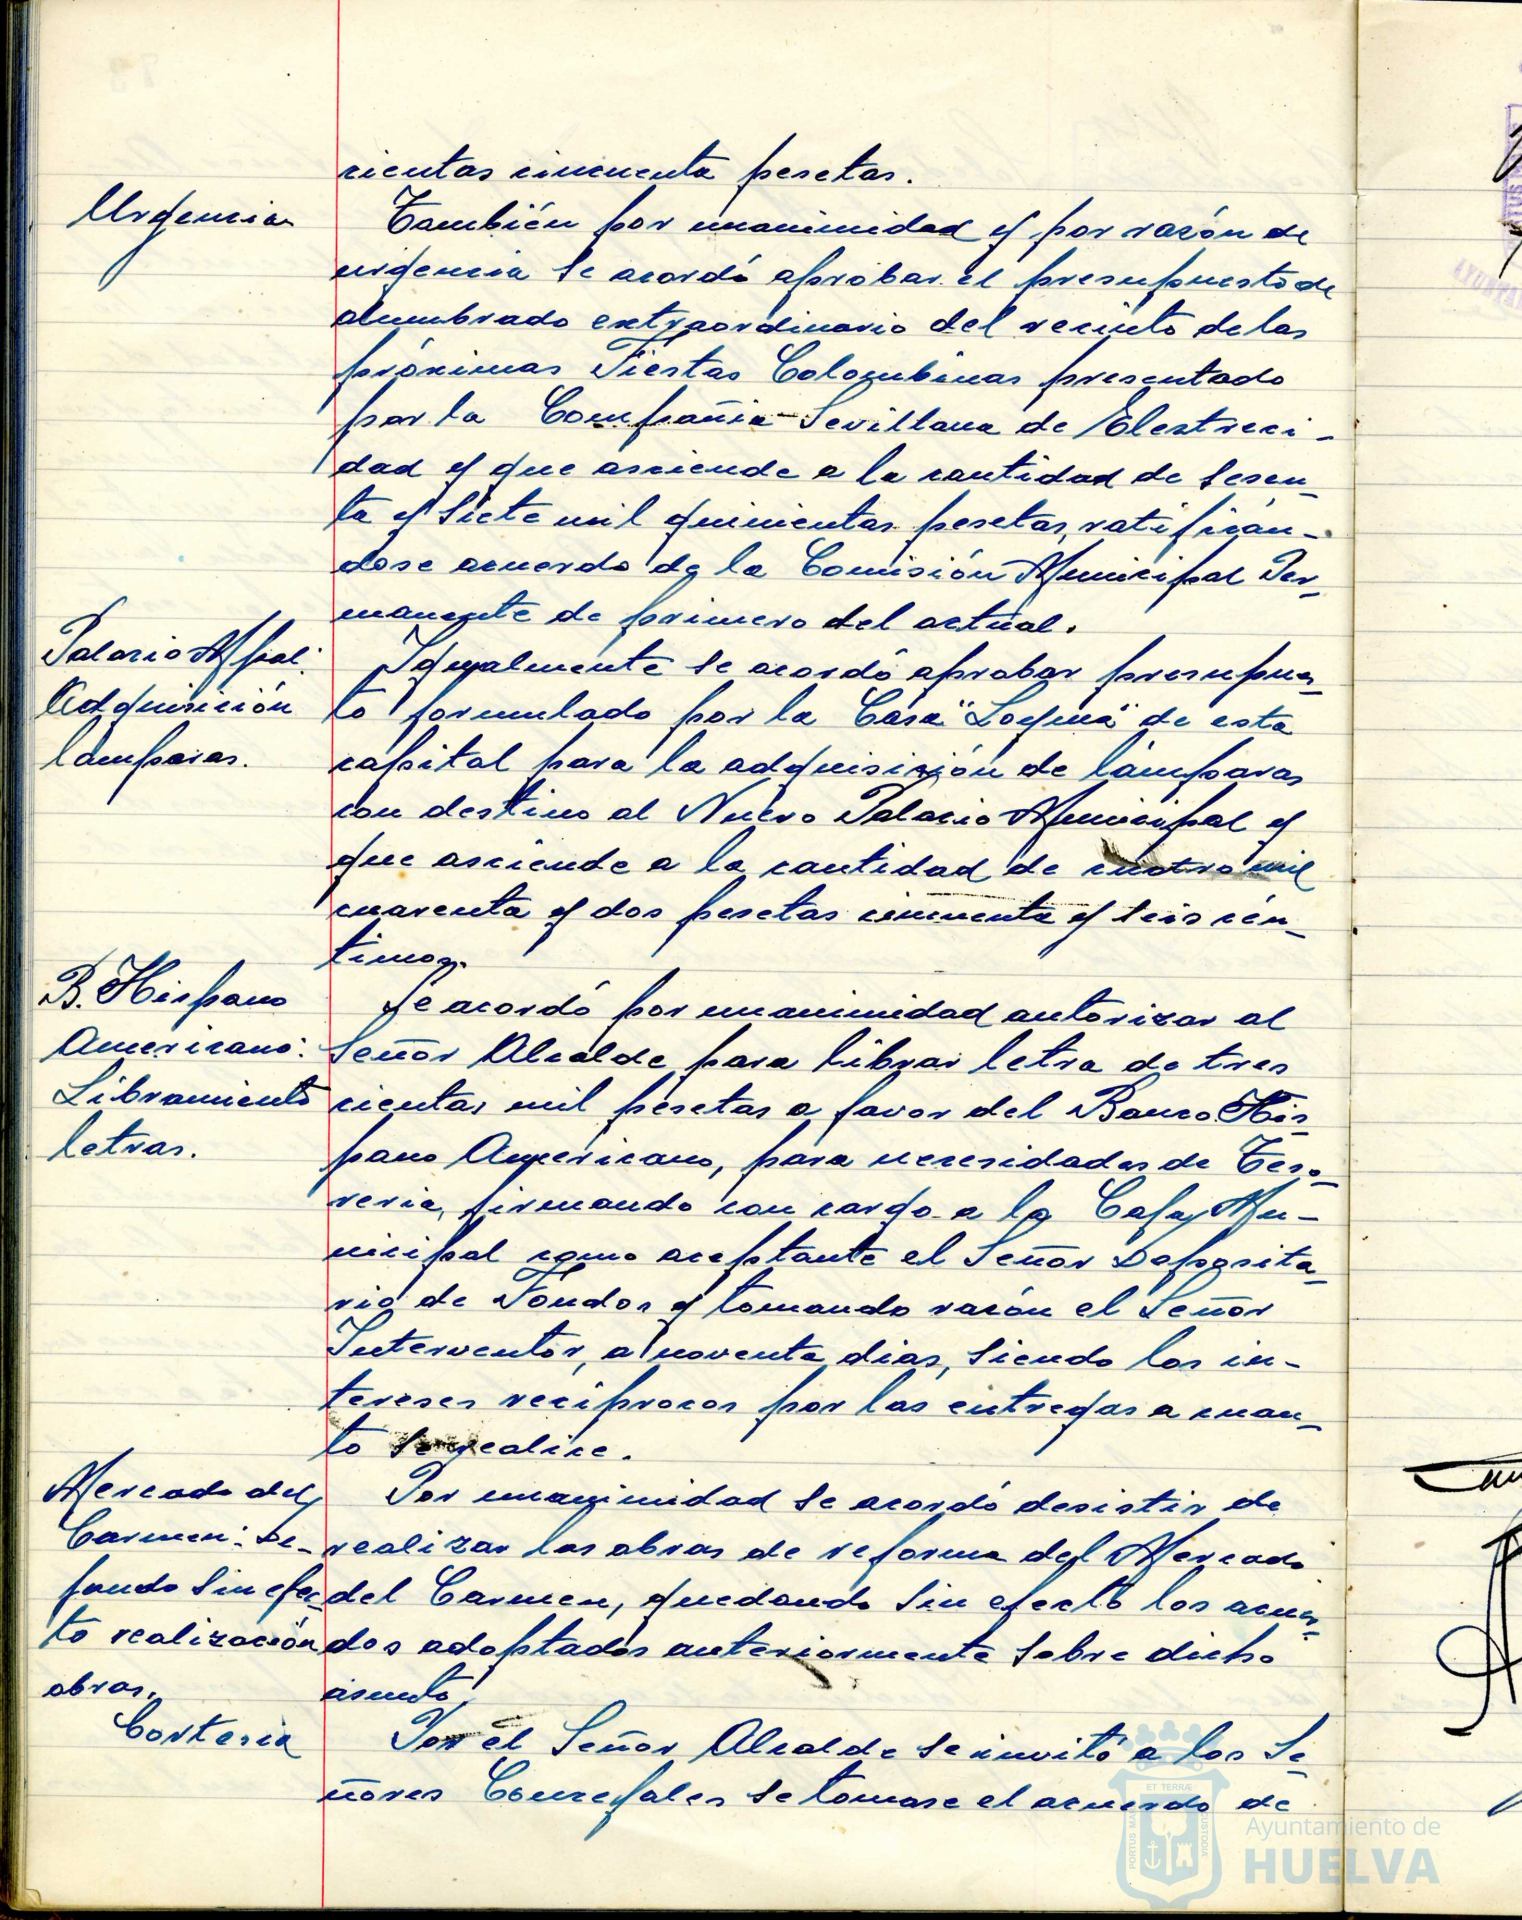 cientas cincuenta pesetas.
Urgencia
También por unanimidad y por razón de
urgencia se acordó aprobar el presupuesto de
alumbrado extraordinario del recinto de las
próximas Fiestas Colombinas presentado
por la Compañia Sevillana de Electreci-
dad y que asciende a la cantidad de sesen-
ta y siete mil quinientas pesetas, ratificán-
dose acuerdo de la Comisión Municipal Per-
manente de primero del actual.
Palacio Mpal.
Adquisición
lámparas.
Igualmente se acordó aprobar presupues-
to formulado por la Casa "Loyma" de esta
capital para la adquisición de lámparas
con destino al Nuevo Palacio Municipal y
que asciende a la cantidad de cuatro mil
cuarenta y dos pesetas cincuenta y seis cén-
timos.
B. Hispano
Americano:
Libramiento
letras.
Se acordó por unanimidad autorizar al
Señor Alcalde para librar letra de tres
cientas mil pesetas a favor del Banco His-
pano Americano, para necesidades de Teso-
reria, firmando con cargo a la Caja Mu-
nicipal como aceptante el Señor Deposita-
rio de Fondos y tomando razón el Señor
Interventor, a noventa dias, siendo los in-
tereses recíprocos por las entregas a cuan-
to se realice.
Mercado del
Carmen: De-
jando sin efec-
to realización
obras.
Por unanimidad se acordó desistir de
realizar las obras de reforma del Mercado
del Carmen, quedando sin efecto los acuer-
dos adoptados anteriormente sobre dicho
asunto.
Cortesia
Por el Señor Alcalde se invitó a los Se-
ñores Concejales se tomase el acuerdo de
Ayuntamiento de
HUELVA